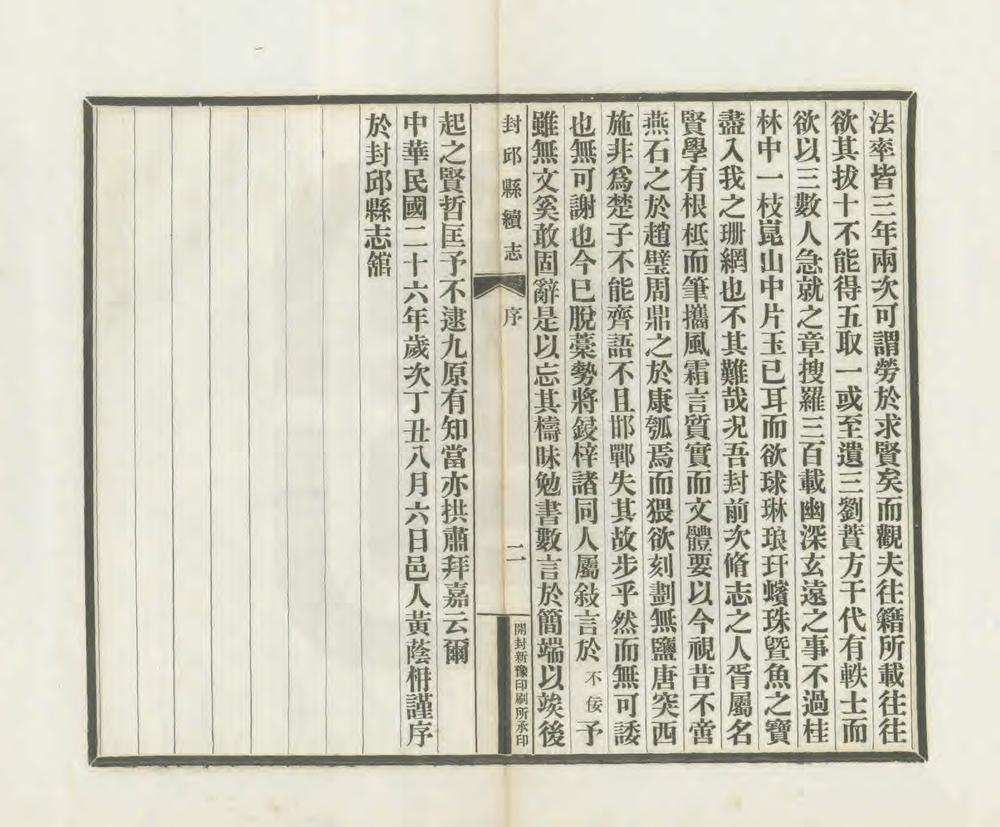 法率皆三年兩次可謂勞於求賢矣而觀夫往籍所載往往
欲其拔十不能得五取一或至遺三劉蕡方干代有軼士而
欲以三數人急就之章搜羅三百載幽深玄遠之事不過桂
林中一枝崑山中片玉已耳而欲球琳琅玕蠙珠曁魚之寶
盡入我之珊網也不其難哉况吾封前次脩志之人胥屬名
賢學有根柢而筆攜風霜言質實而文體要以今視昔不啻
燕石之於趙璧周鼎之於康瓠焉而猥欲刻劃無鹽唐突西
施非爲楚子不能齊語不且邯鄲失其故步乎然而無可諉
也無可謝也今已脫藁勢將鋟梓諸同人屬敍言於不佞予
雖無文奚敢固辭是以忘其檮昧勉書數言於簡端以竢後
封邱縣續志
序
二
開封新豫印刷所承印
起之賢哲匡予不逮九原有知當亦拱肅拜嘉云爾
中華民國二十六年歲次丁丑八月六日邑人黃蔭枏謹序
於封邱縣志舘